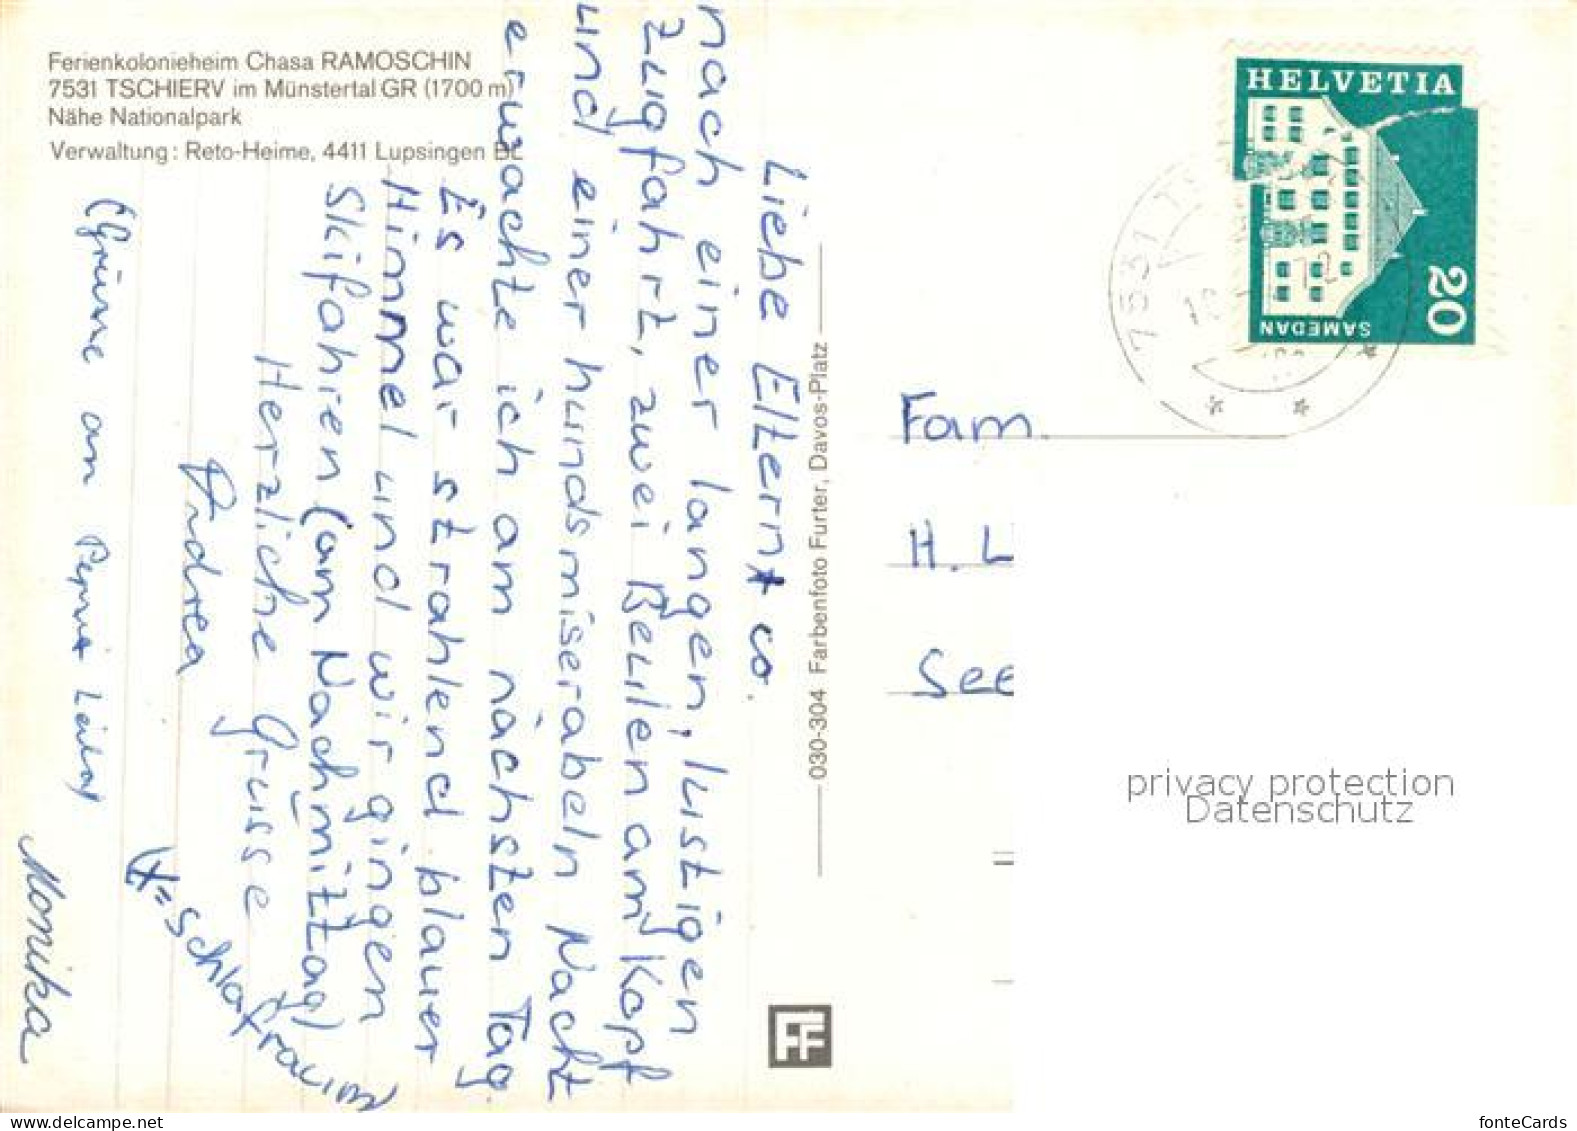 Ferienkolonieheim Chasa RAMOSCHIN
7531 TSCHIERV im Münstertal GR (1700 m)
Nähe Nationalpark
Verwaltung: Reto-Heime, 4411 Lupsingen BL
Liebe Eltern + co.
nach einer langen, lustigen
Zugfahrt, zwei Beulen am Kopf
und einer hundsmiserabeln Nacht
erwachte ich am nächsten Tag.
Es war strahlend blauer
Himmel und wir gingen
Skifahren (am Nachmittag)
Herzliche Grüsse
Andrea
(Grüsse an
Monika
(x = Schlafraum)
030-304 Farbenfoto Furter, Davos-Platz
FF
HELVETIA
SAMEDAN
20
7531 TS
Fam.
H. L
See
privacy protection
Datenschutz
delcampe.net
fonteCards